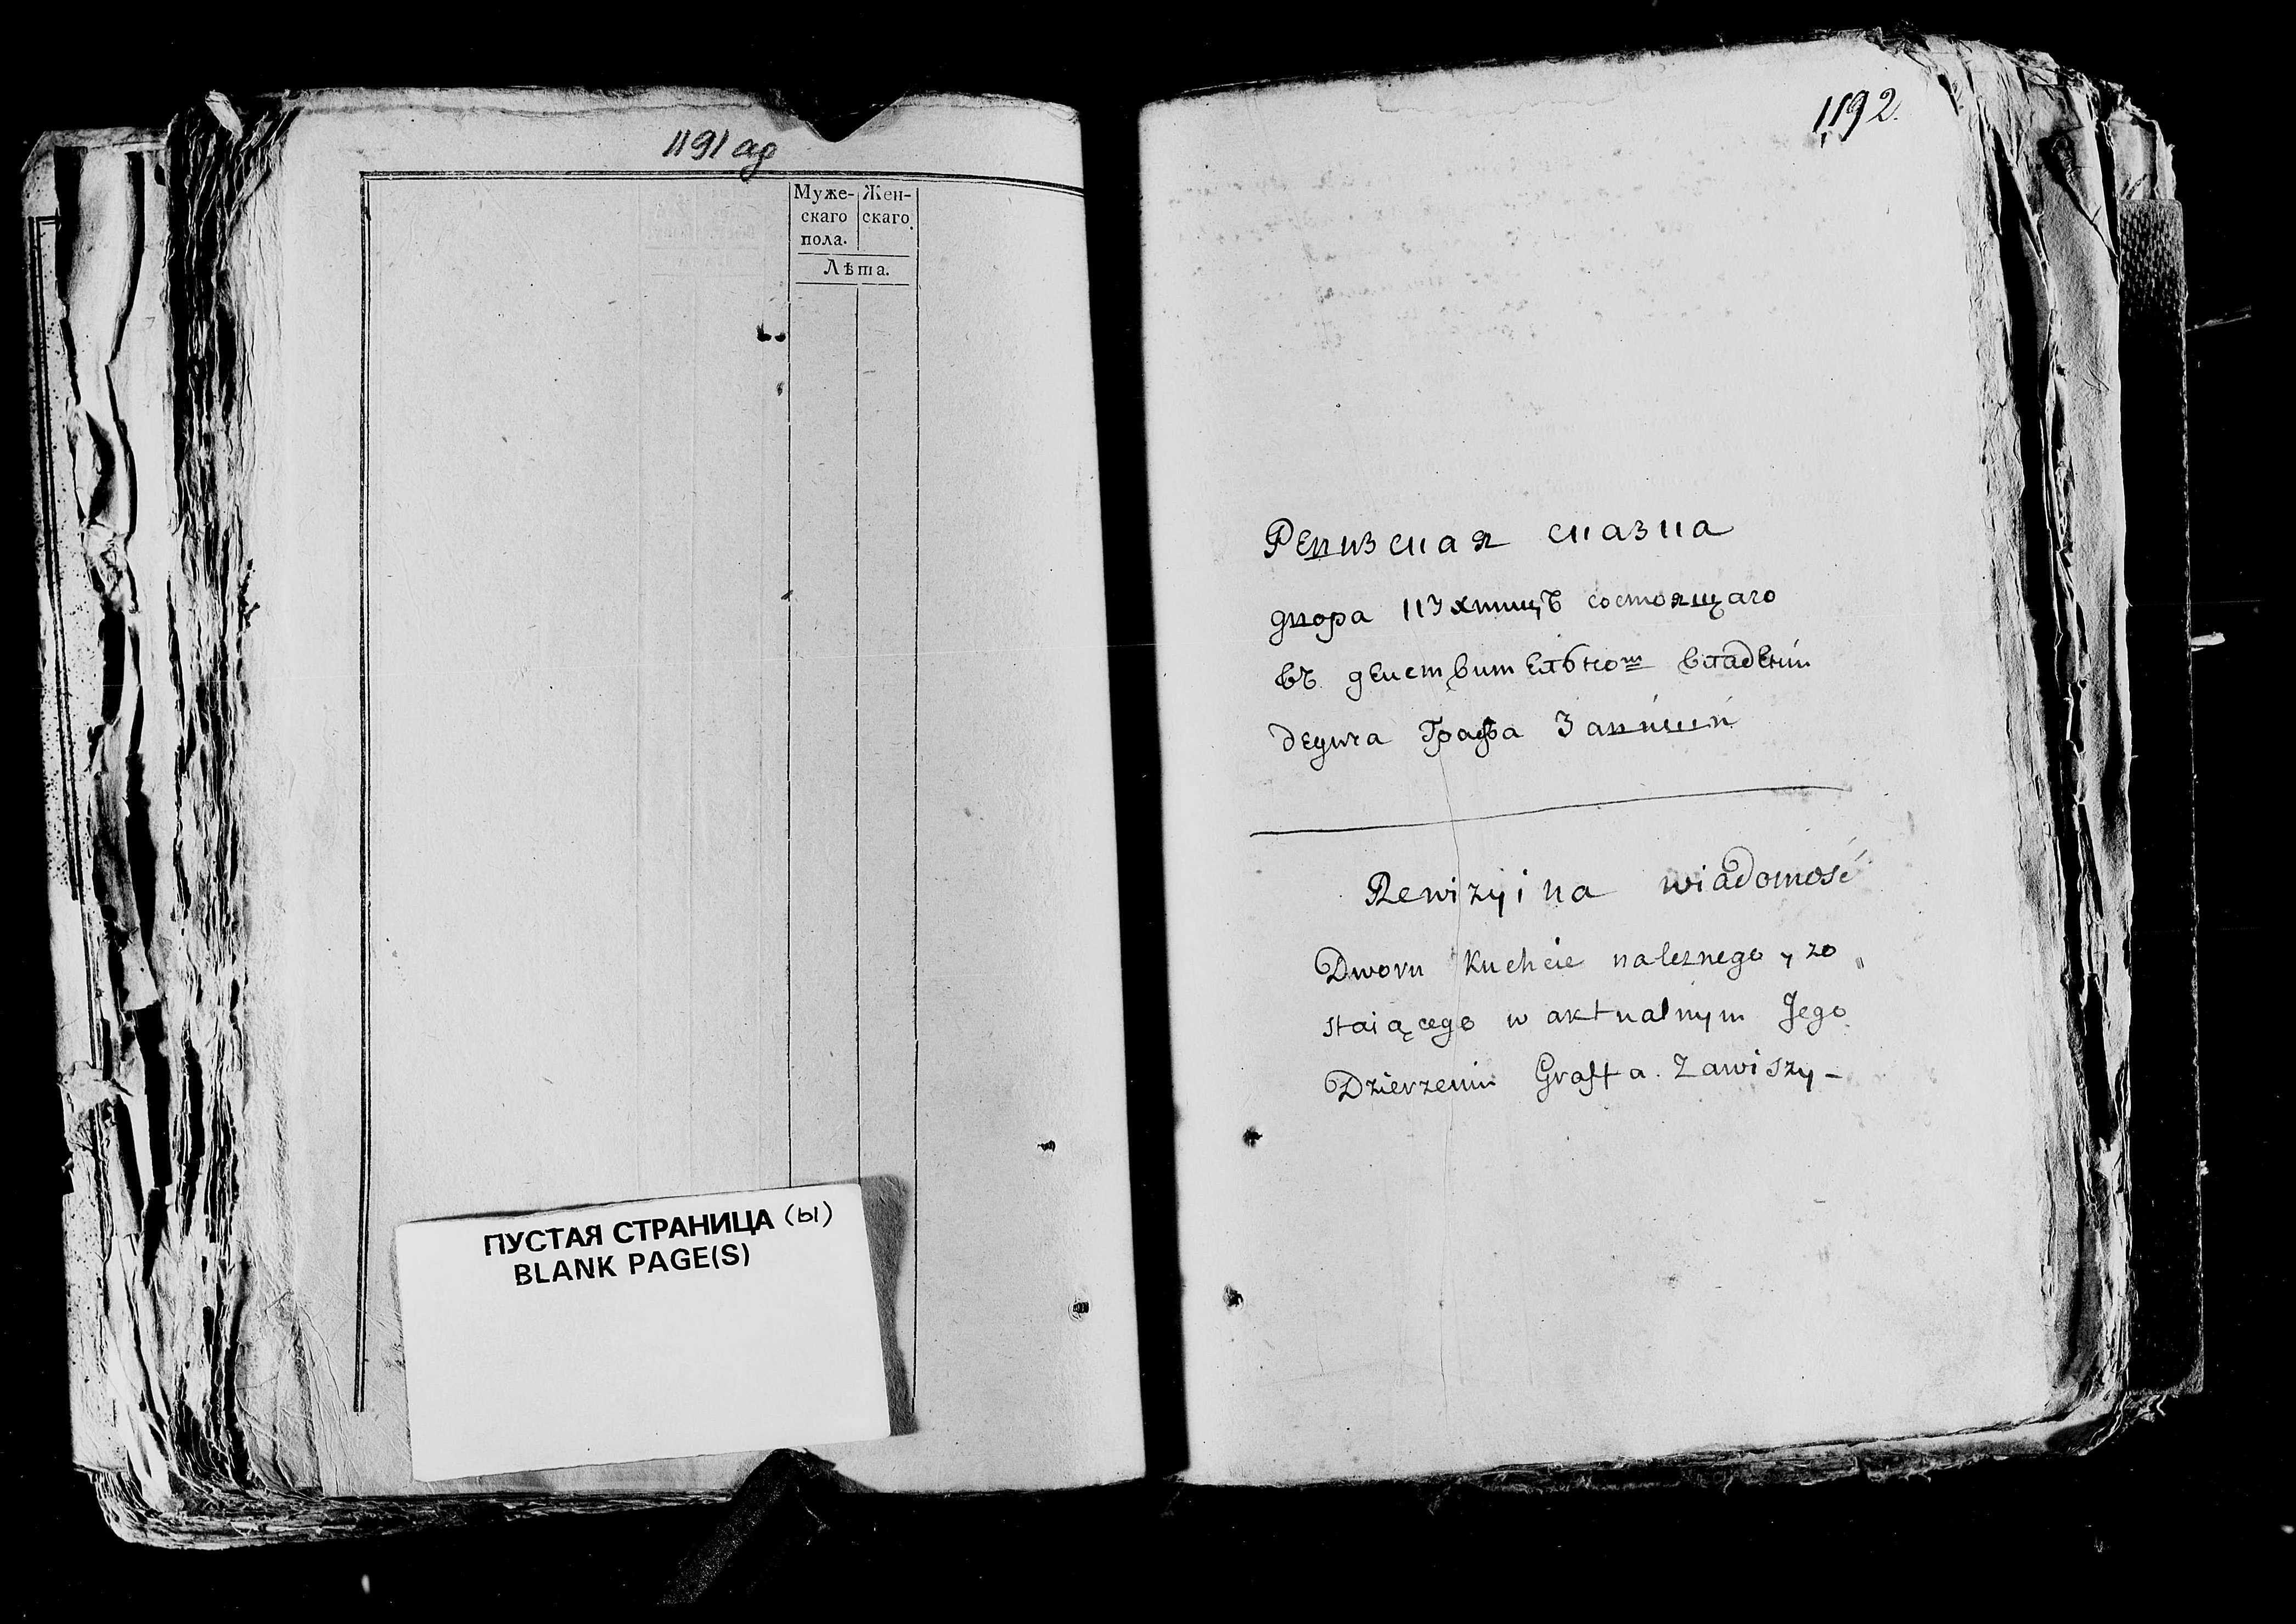 1191 ад
Муже-
скаго
пола.
Жен-
скаго.
Лѣта.
ПУСТАЯ СТРАНИЦА (ы)
BLANK PAGE(S)
1192.
Ревизская сказка
двора состоящаго
въ действительном владении
дедича Графа Завиши
Rewizyina wiadomość
Dworu Kuchcic należnego, zo„
staiącego w aktualnym Jego
Dzierzeniu Graffa Zawiszy –